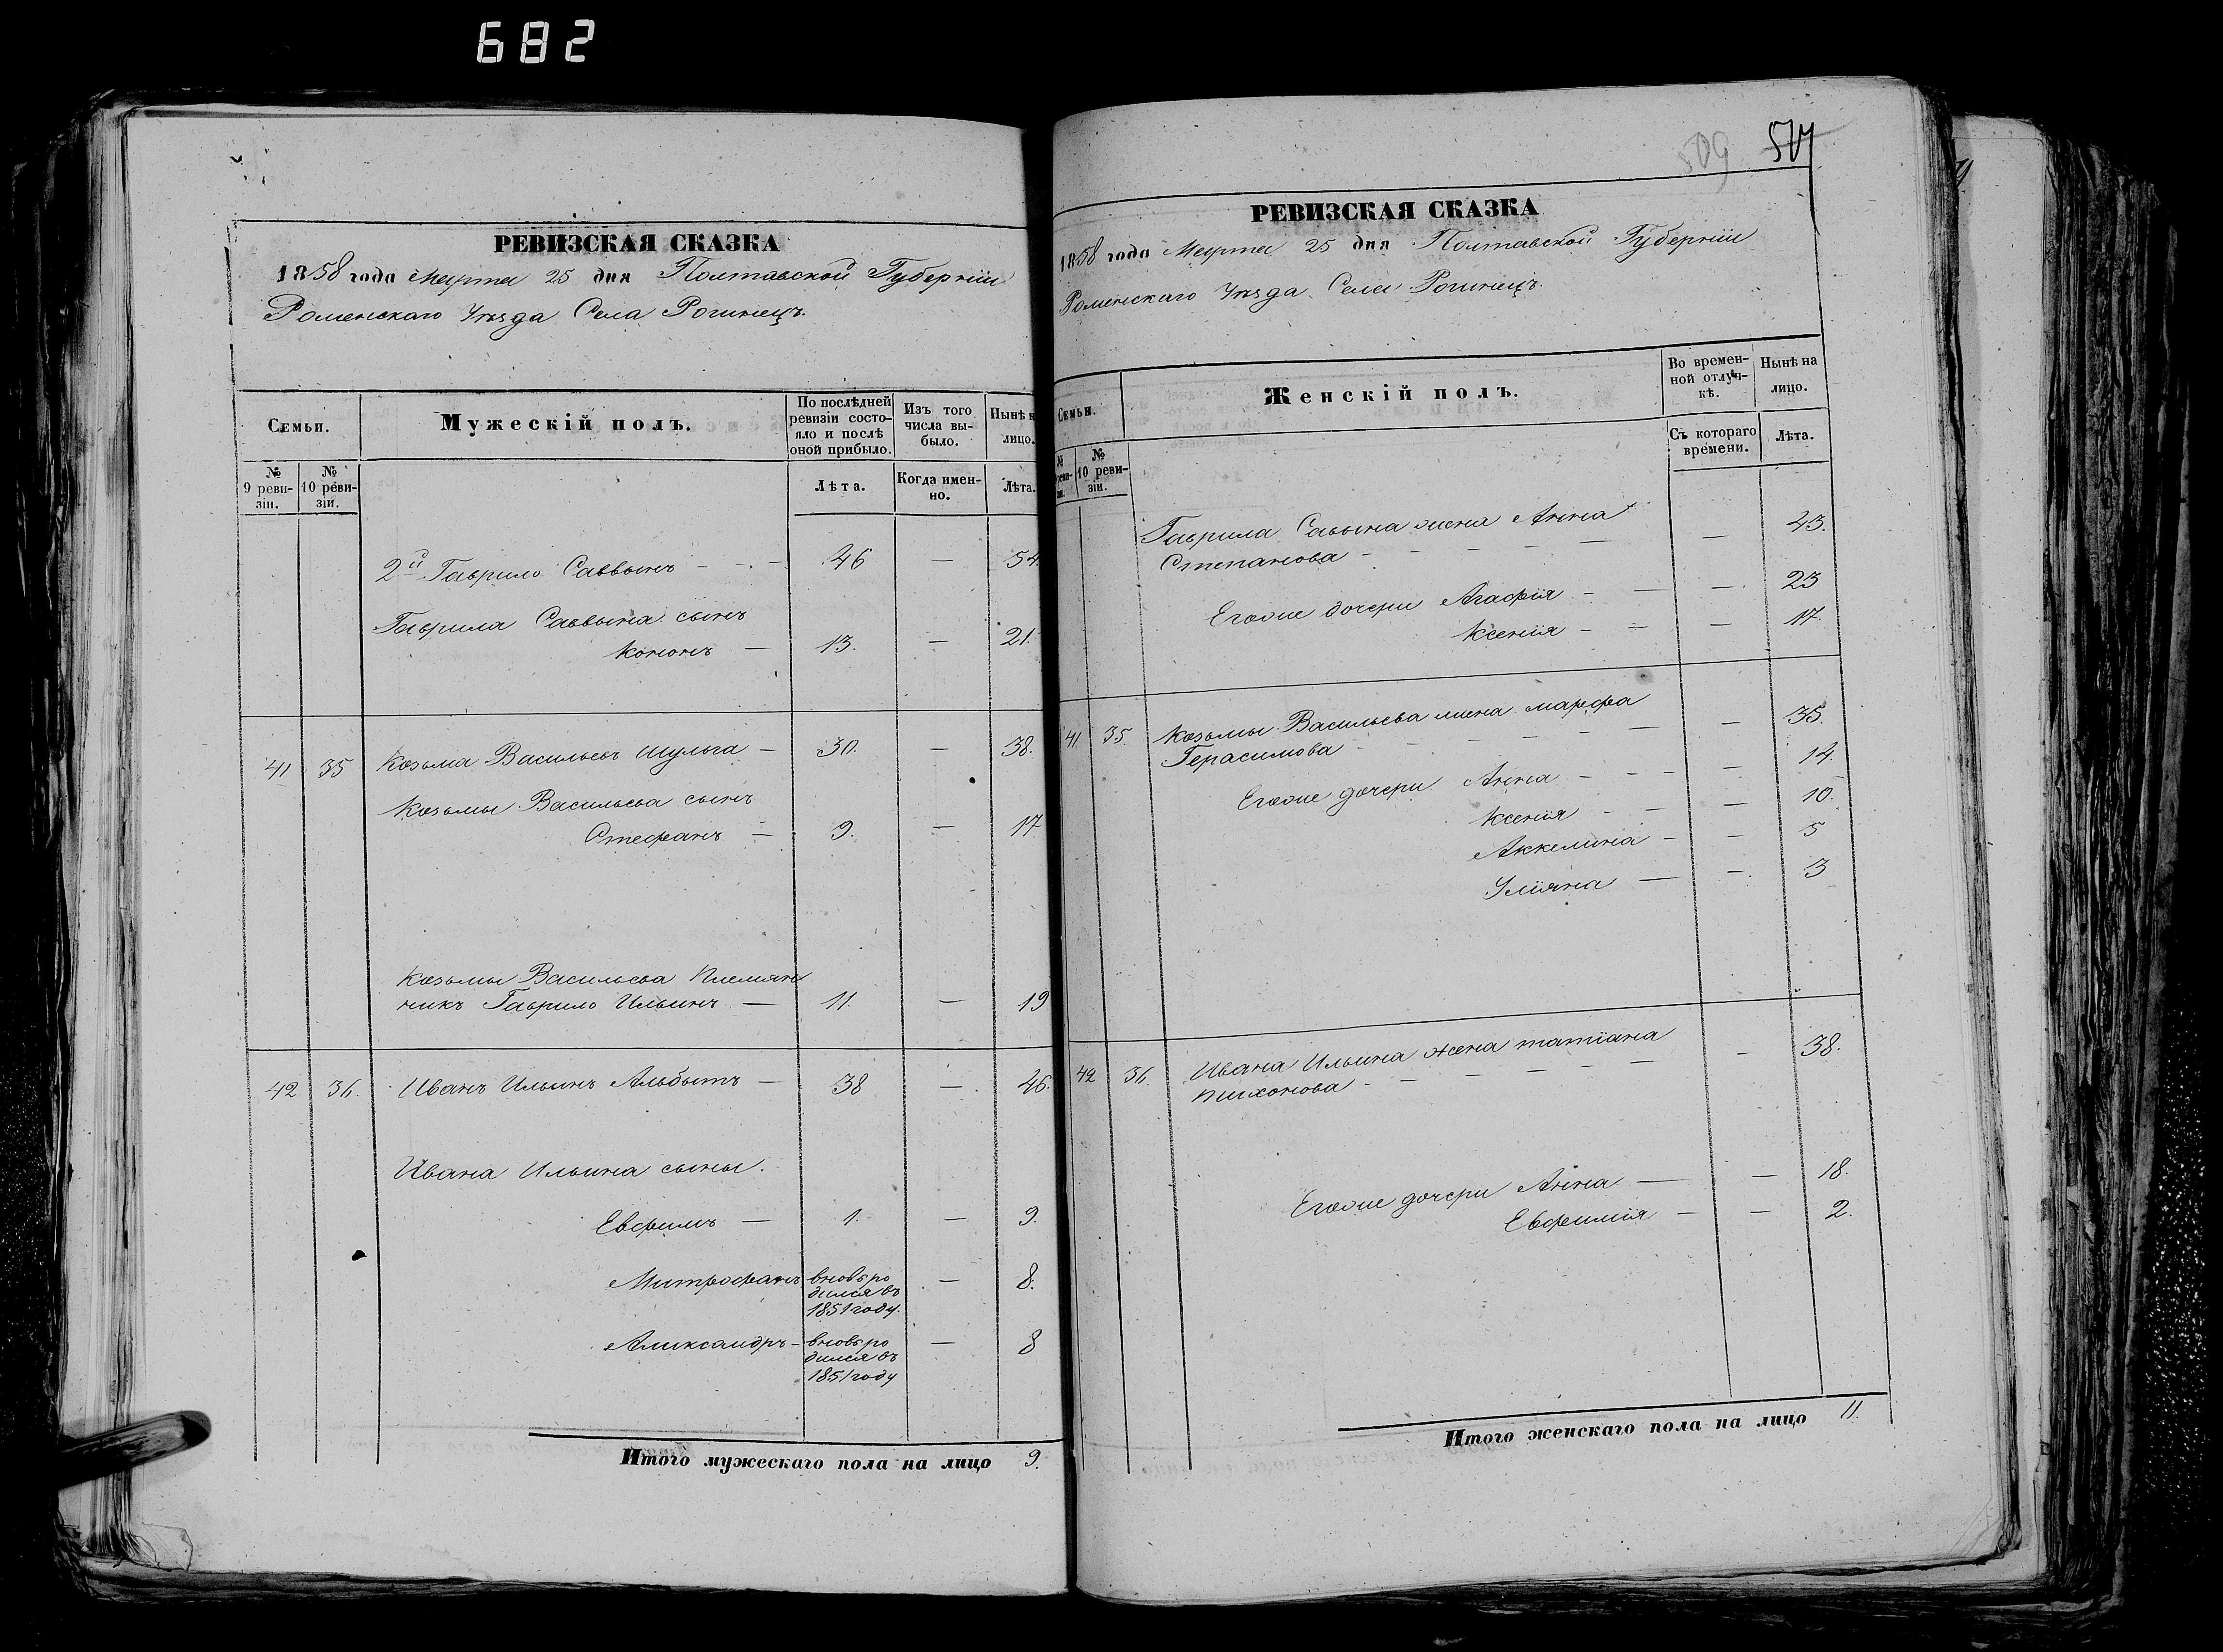 682
РЕВИЗСКАЯ СКАЗКА
1858 года Марта 25 дня Полтавской Губерніи
Роменскаго Уѣзда Села Рогинецъ.
Семьи.
Мужескій полъ.
По послѣдней ревизіи состояло и послѣ оной прибыло.
Изъ того числа выбыло.
Нынѣ н лицо.
№ 9 ревизіи.
№ 10 ревизіи.
Лѣта.
Когда именно.
Лѣта.
2й Гаврило Саввинъ - - - 46 — 54.
Гаврила Саввина сынъ
Кононъ — 13. — 21.
41 35 Козьма Васильевъ Шульга — 30. — 38.
Козьмы Васильева сынъ
Стефанъ — 9. — 17
Козьмы Васильева Племян
никъ Гаврило Ильинъ — 11. — 19
42 36. Иванъ Ильинъ Альбытъ — 38 — 46.
Ивана Ильина сыны.
Евфимъ — 1. — 9.
Митрофанъ вновь ро
дился въ
1851 году. — 8.
Александръ - вновь ро
дился въ
1851 году — 8
Итого мужескаго пола на лицо 9.
509
РЕВИЗСКАЯ СКАЗКА
1858 года Марта 25 дня Полтавской Губерніи
Роменскаго Уѣзда Села Рогинецъ.
Семьи.
Женскій полъ.
Во временной отлучкѣ.
Нынѣ на лицо.
№ 10 ревизіи.
Съ котораго времени.
Лѣта.
Гаврила Савина жена Анна
Степанова - - - - — — 43.
Егоже дочери Агафія - — — 23
Ксенія - — — 17.
41. 35. Козьмы Васильева жена Марфа
Герасимова - - - - - — — 35.
Егоже дочери Анна - - - — 14.
Ксенія - — — 10.
Аккелина - — 5
Уліяна — — 3
42 36. Ивана Ильина жена татіана
тихонова - - - - - — - 38.
Егоже дочери Анна — — 18.
Евфимія - — 2.
Итого женскаго пола на лицо 11.